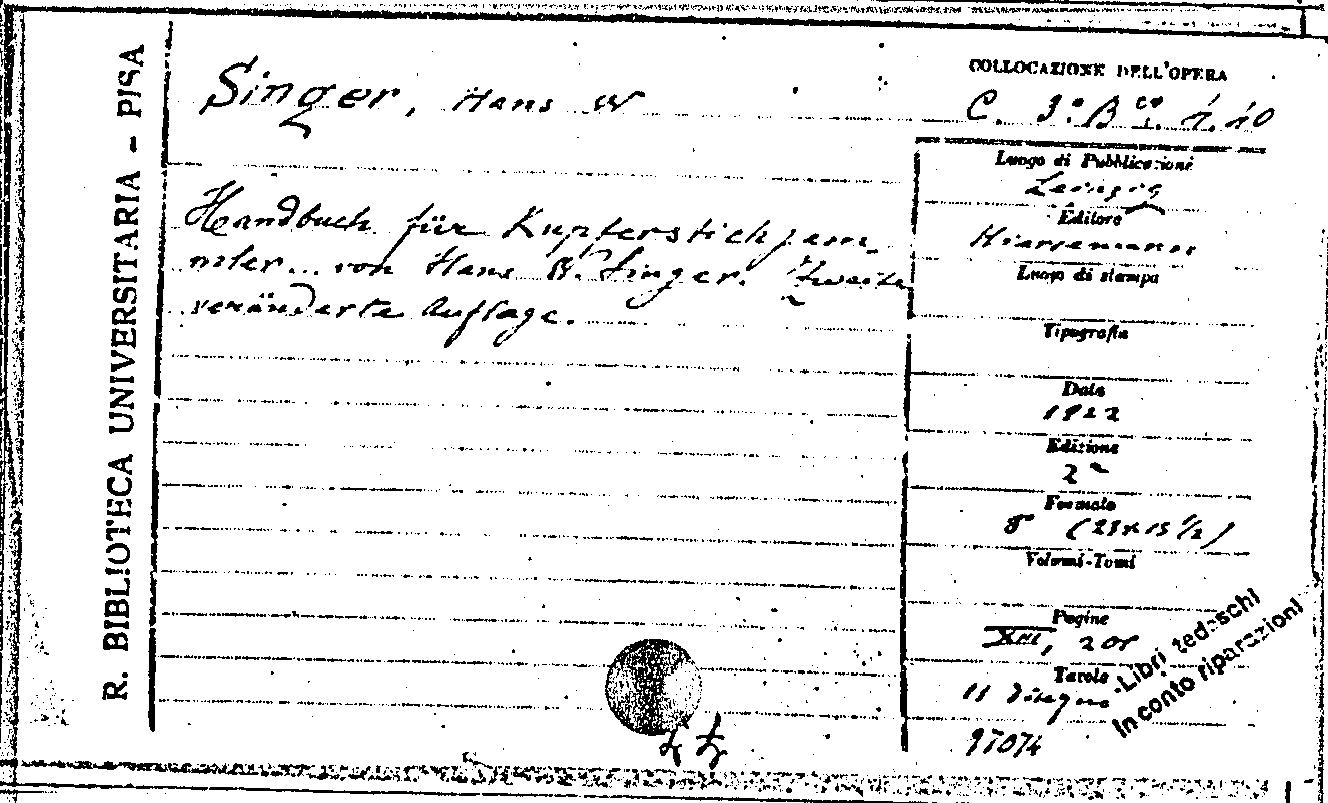 R. BIBLIOTECA UNIVERSITARIA - PISA
Singer, Hans W
COLLOCAZIONE DELL'OPERA
C. 3.º B. 1.10
Handbuch für Kupferstichsam-
mler... von Hans W. Singer. Zweite
veränderte Auflage.
Luogo di Pubblicazione
Leipzig
Editore
Hiersemann
Luogo di stampa
Tipografia
Data
1922
Edizione
2ª
Formato
8º (23x15 1/2)
Volumi-Tomi
Pagine
XIII,
Tavole
11 disegni
-Libri tedeschi
In conto riparazioni